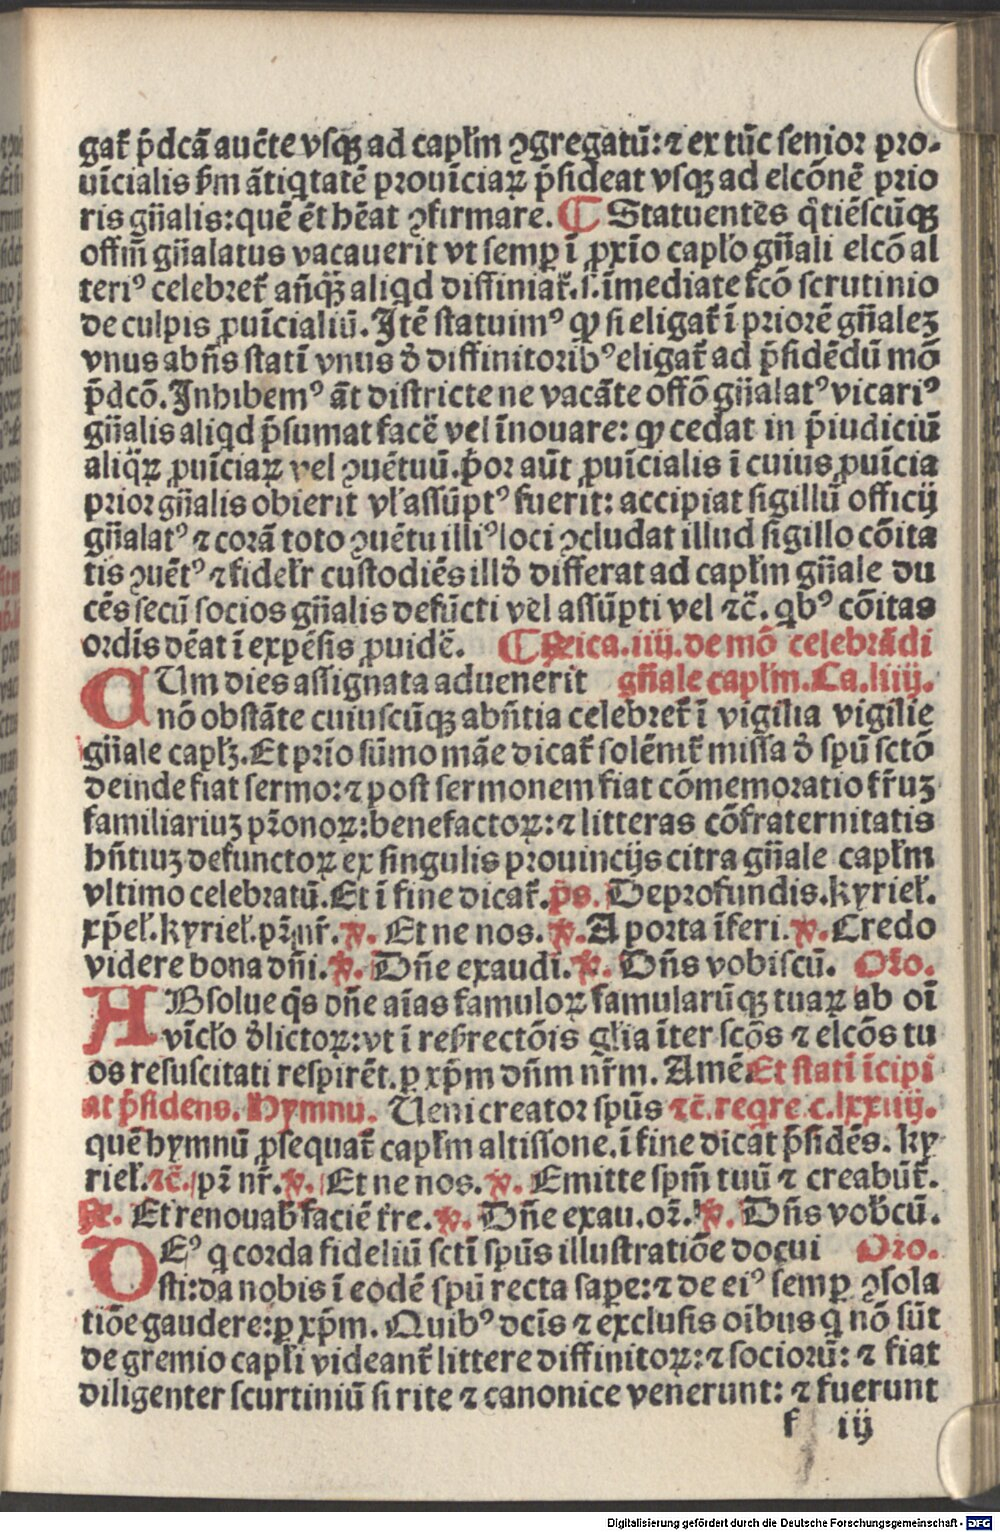 gat̃ p̃dcã auc̃te vsqꝫ ad capl̃m ꝯgregatũ: ⁊ ex tũc senior pro-
uĩcialis ẜm ãtiq̃tatẽ prouĩciaꝝ p̃sideat vsqꝫ ad elcõnẽ prio
ris gñalis: quẽ ẽt hẽat ꝯfirmare. ¶ Statuentes q̃tiẽscũqꝫ
offm̃ gñalatus vacauerit vt semꝑ ĩ ꝓxĩo caplo gñali elcõ al
teriꝰ celebret̃ añq̃ꝫ aliqd diffiniat̃. s. ĩmediate fcõ scrutinio
de culpis ꝓuĩcialiũ. Itẽ statuimꝰ ꝙ si eligat̃ ĩ priorẽ gñaleꝫ
vnus abñs statĩ vnus ð diffinitoribꝰ eligat̃ ad p̃sidẽdũ mõ
p̃dcõ. Inhibemꝰ ãt districte ne vacãte offõ gñalatꝰ vicariꝰ
gñalis aliqd p̃sumat facẽ vel ĩnouare: ꝙ cedat in p̃iudiciũ
aliq̃ꝝ ꝓuĩciaꝝ vel ꝯuẽtuũ. p̃or aũt ꝓuĩcialis ĩ cuius ꝓuĩcia
prior gñalis obierit vl̃ assũptꝰ fuerit: accipiat sigillũ officij
gñalatꝰ ⁊ corã toto ꝯuẽtu illiꝰ loci ꝯcludat illud sigillo cõita
tis ꝯuẽtꝰ ⁊ fidel̃r custodiẽs illð differat ad capl̃m gñale du
cẽs secũ socios gñalis defũcti vel assũpti vel ⁊c̃. qbꝰ cõitas
ordĩs dẽat ĩ expẽsis ꝓuidẽ. ¶ Rrica. iiij. de mõ celebrãdi
CUm dies assignata aduenerit gñale capl̃m. Ca. liiij.
nõ obstãte cuiuscũqꝫ abñtia celebret̃ ĩ vigilia vigilie
gñale caplꝫ. Et prĩo sũmo mãe dicat̃ solẽnit̃ missa ð spũ sctõ
deinde fiat sermo: ⁊ post sermonem fiat cõmemoratio fr̃uꝫ
familiariuꝫ pr̃onoꝝ: benefactoꝝ: ⁊ litteras cõfraternitatis
hñtiuꝫ defunctoꝝ ex singulis prouincijs citra gñale capl̃m
vltimo celebratũ. Et ĩ fine dicat̃. p̃s. De profundis. kyriel̃.
xp̃el̃. kyriel̃. pr̃ nr̃. ℣. Et ne nos. ℣. A porta ĩferi. ℣. Credo
videre bona dñi. ℣. Dñe exaudi. ℣. Dñs vobiscũ. Oro.
ABsolue q̃s dñe aĩas famuloꝝ famularũqꝫ tuaꝝ ab oĩ
vĩclo ðlictoꝝ: vt ĩ resrectõis glia ĩter scõs ⁊ elcõs tu
os resuscitati respirẽt. ꝑ xp̃m dñm nr̃m. Amẽ. Et statĩ ĩcipi
at p̃sidens. Hymnũ. Ueni creator spũs ⁊c̃. reqre c. lxxiiij.
quẽ hymnũ ꝓsequat̃ capl̃m alt̃issone. ĩ fine dicat p̃sidẽs. ky-
riel̃. ⁊c̃. pr̃ nr̃. ℣. Et ne nos. ℣. Emitte spm̃ tuũ ⁊ creabũt̃.
℟. Et renouab̃ faciẽ tr̃e. ℣. Dñe exau. or̃. ℣. Dñs vob̃cũ.
DEꝰ q corda fideliũ sctĩ spũs illustratiõe docui Oro.
sti: da nobis ĩ eodẽ spũ recta saꝑe: ⁊ de eiꝰ semꝑ ꝯsola
tiõe gaudere: ꝑ xp̃m. Quibꝰ dcĩs ⁊ exclusis oĩbus q̃ nõ sũt
de gremio capl̃i videant̃ littere diffinitoꝝ: ⁊ sociorũ: ⁊ fiat
diligenter scurtiniũ si rite ⁊ canonice venerunt: ⁊ fuerunt
f iij
Digitalisierung gefördert durch die Deutsche Forschungsgemeinschaft - DFG